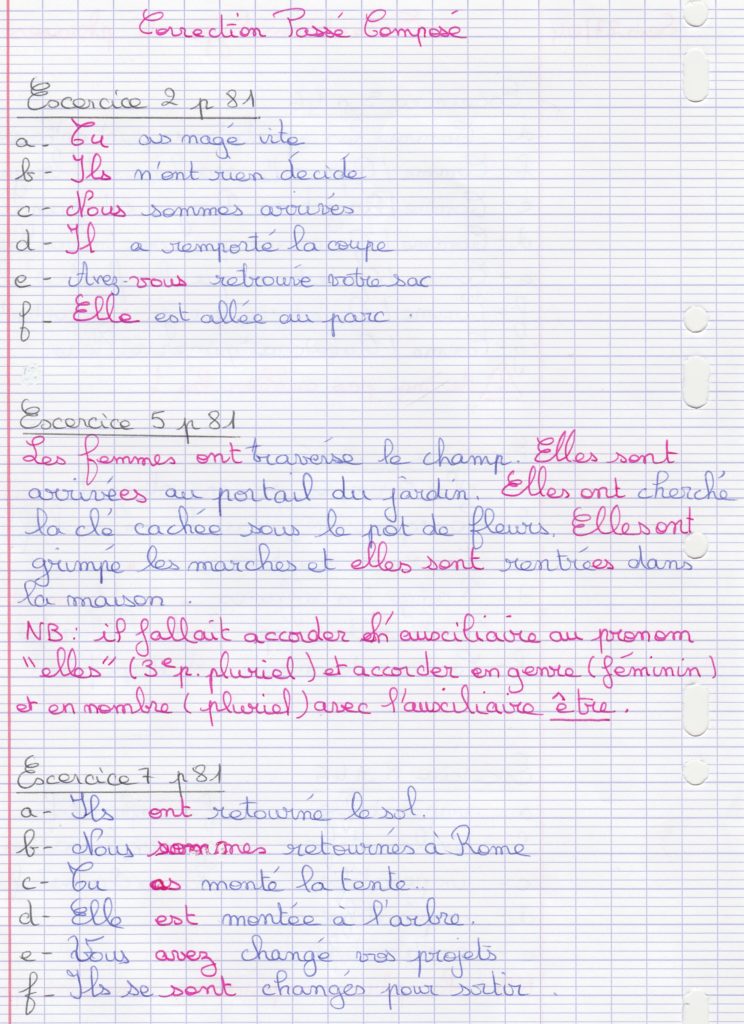 Correction Passé Composé
Excercice 2 p 81
a - Tu as nagé vite
b - Ils n'ont rien décidé
c - Nous sommes arrivés
d - Il a remporté la coupe
e - Avez-vous retrouvé votre sac
f - Elle est allée au parc.
Excercice 5 p 81
Les femmes ont traversé le champ. Elles sont
arrivées au portail du jardin. Elles ont cherché
la clé cachée sous le pot de fleurs. Elles ont
grimpé les marches et elles sont rentrées dans
la maison.
NB : il fallait accorder l'auxciliaire au pronom
"elles" (3e p. pluriel) et accorder en genre (féminin)
et en nombre (pluriel) avec l'auxciliaire être.
Excercice 7 p 81
a - Ils ont retourné le sol.
b - Nous sommes retournés à Rome
c - Tu as monté la tente.
d - Elle est montée à l'arbre.
e - Vous avez changé vos projets
f - Ils se sont changés pour sortir.